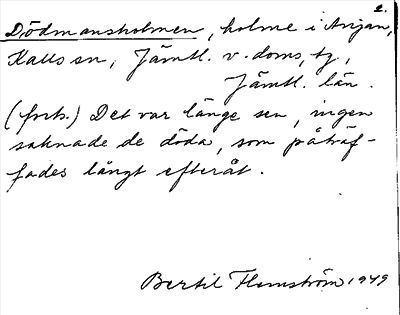 2.
Dödmansholmen, holme i Anjan,
Kalls sn, Jämtl. v. doms. tg,
Jämtl. län.
(forts.) Det var länge sen, ingen
saknade de döda, som påträf-
fades långt efteråt.
Bertil Flemström 1949